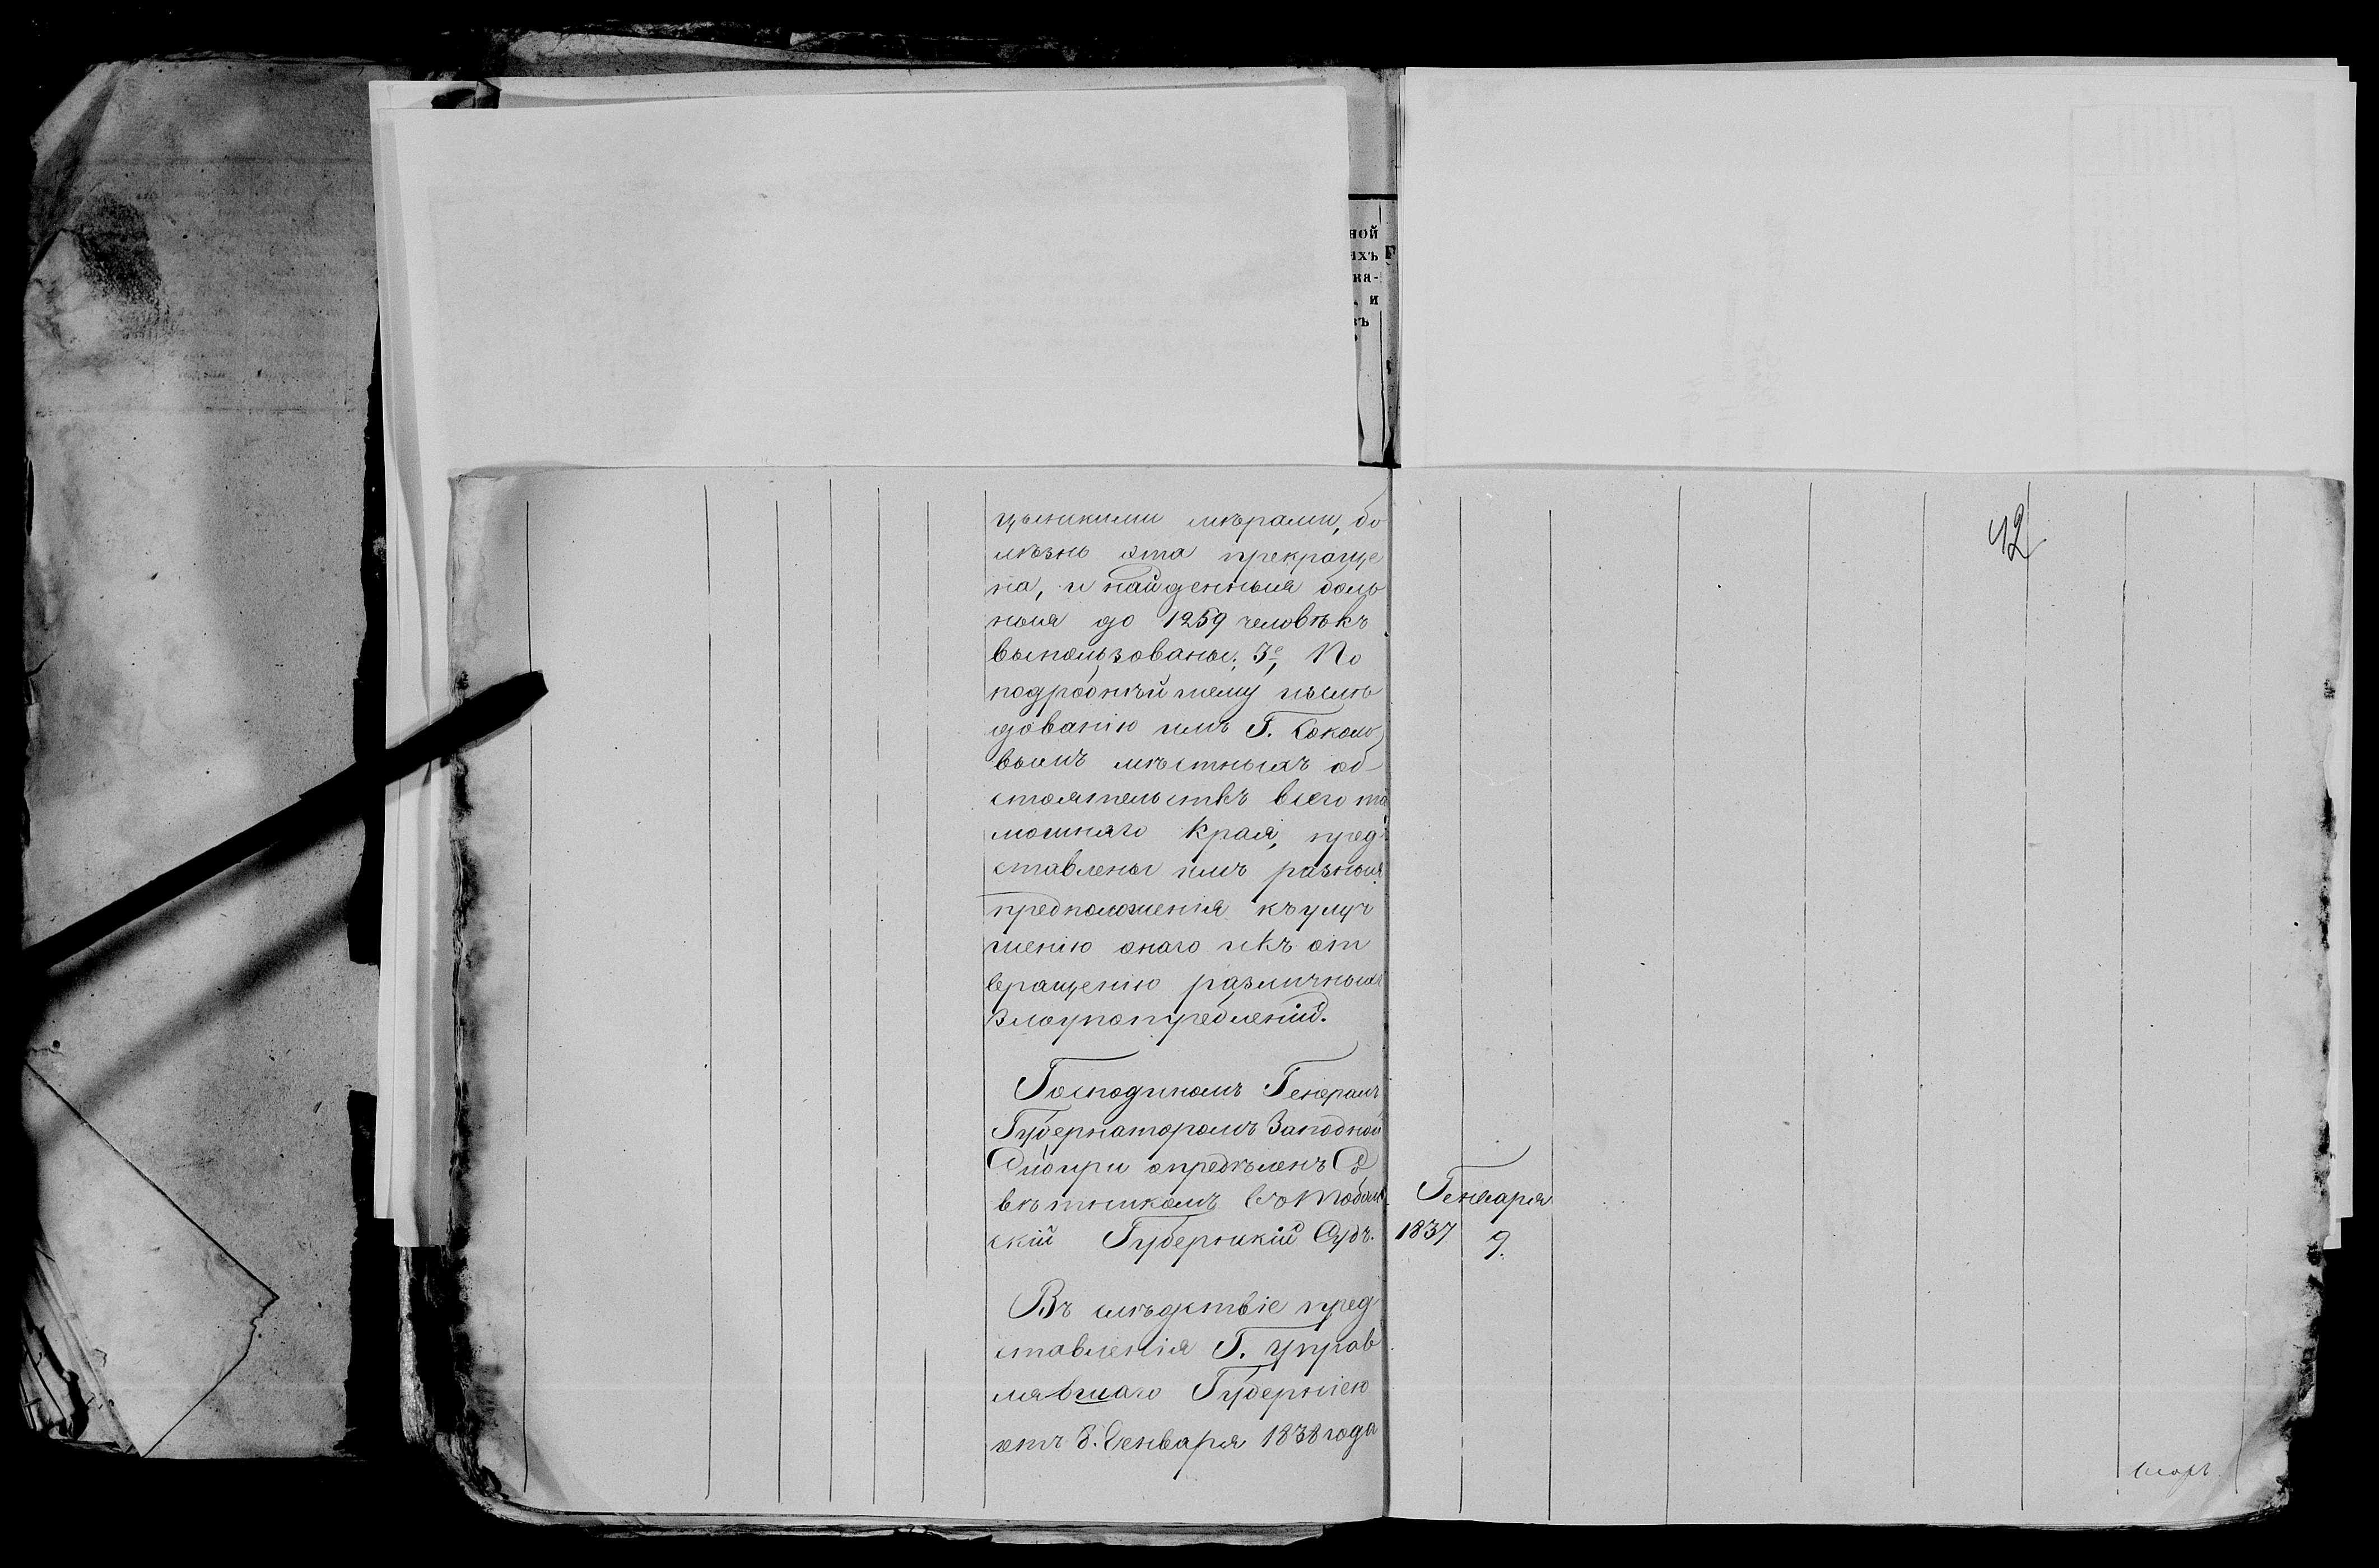 ной
ихъ
ка-
, и
въ
цынскими мѣрами, бо
лѣзнь эта прекраще
на, и найденныя боль
ныя до 1259 человѣкъ
выпользованы; 3е, По
подробнѣйшему изслѣ
дованію имъ Г. Соколо
вымъ мѣстныхъ об
стоятельствъ всего та
мошняго края, пред
ставлены имъ разныя
предположенія къ улуч
шенію онаго и къ от
вращенію различныхъ
злоупотребленій.
Господиномъ Генералъ
Губернаторомъ Западной
Сибири опредѣленъ Со
вѣтникомъ въ Тоболь
скій Губернскій Судъ.
Въ слѣдствіе пред
ставленія Г. Управ
лявшаго Губерніею
отъ 8. Генваря 1838 года
42
Генваря
1837 9.